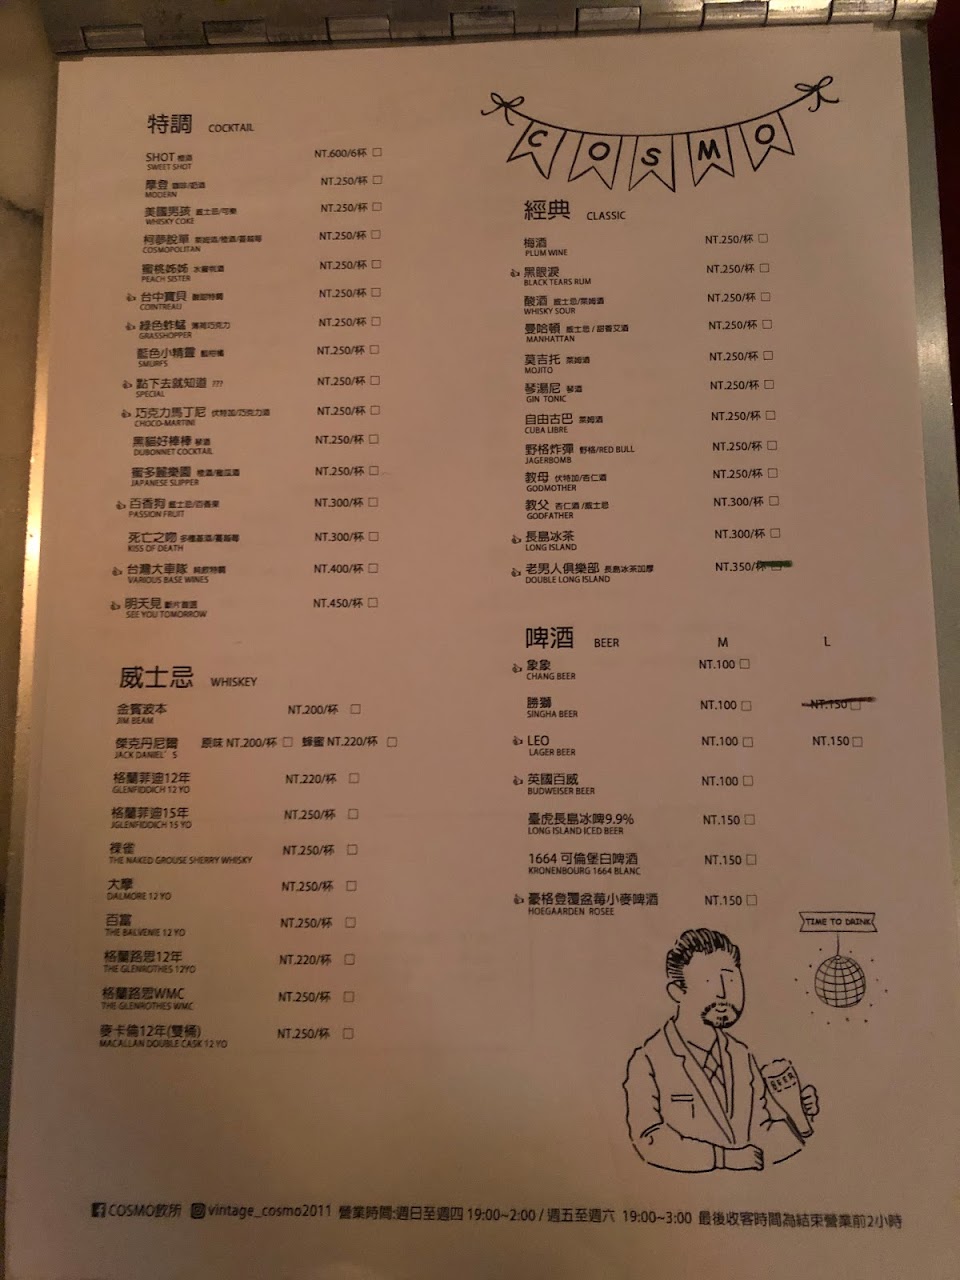 COSMO
特調 COCKTAIL
SHOT 橙酒 NT.600/6杯
SWEET SHOT
摩登 咖啡/奶酒 NT.250/杯
MODERN
美國男孩 威士忌/可樂 NT.250/杯
WHISKY COKE
柯夢脫單 萊姆酒/橙酒/蔓越莓 NT.250/杯
COSMOPOLITAN
蜜桃姊姊 水蜜桃酒 NT.250/杯
PEACH SISTER
台中寶貝 酸甜特調 NT.250/杯
COINTREAU
綠色蚱蜢 薄荷巧克力 NT.250/杯
GRASSHOPPER
藍色小精靈 藍柑橘 NT.250/杯
SMURFS
點下去就知道 ??? NT.250/杯
SPECIAL
巧克力馬丁尼 伏特加/巧克力酒 NT.250/杯
CHOCO-MARTINI
黑貓好棒棒 琴酒 NT.250/杯
DUBONNET COCKTAIL
蜜多麗樂園 橙酒/蜜瓜酒 NT.250/杯
JAPANESE SLIPPER
百香狗 威士忌/百香果 NT.300/杯
PASSION FRUIT
死亡之吻 多種基酒/蔓越莓 NT.300/杯
KISS OF DEATH
台灣大車隊 純飲特調 NT.400/杯
VARIOUS BASE WINES
明天見 斷片首選 NT.450/杯
SEE YOU TOMORROW
威士忌 WHISKEY
金賓波本 NT.200/杯
JIM BEAM
傑克丹尼爾 原味 NT.200/杯 蜂蜜 NT.220/杯
JACK DANIEL'S
格蘭菲迪12年 NT.220/杯
GLENFIDDICH 12 YO
格蘭菲迪15年 NT.250/杯
JGLENFIDDICH 15 YO
裸雀 NT.250/杯
THE NAKED GROUSE SHERRY WHISKY
大摩 NT.250/杯
DALMORE 12 YO
百富 NT.250/杯
THE BALVENIE 12 YO
格蘭路思12年 NT.220/杯
THE GLENROTHES 12YO
格蘭路思WMC NT.250/杯
THE GLENROTHES WMC
麥卡倫12年(雙桶) NT.250/杯
MACALLAN DOUBLE CASK 12 YO
經典 CLASSIC
梅酒 NT.250/杯
PLUM WINE
黑眼淚 NT.250/杯
BLACK TEARS RUM
酸酒 威士忌/萊姆酒 NT.250/杯
WHISKY SOUR
曼哈頓 威士忌/甜香艾酒 NT.250/杯
MANHATTAN
莫吉托 萊姆酒 NT.250/杯
MOJITO
琴湯尼 琴酒 NT.250/杯
GIN TONIC
自由古巴 萊姆酒 NT.250/杯
CUBA LIBRE
野格炸彈 野格/RED BULL NT.250/杯
JAGERBOMB
教母 伏特加/杏仁酒 NT.250/杯
GODMOTHER
教父 杏仁酒/威士忌 NT.300/杯
GODFATHER
長島冰茶 NT.300/杯
LONG ISLAND
老男人俱樂部 長島冰茶加厚 NT.350/杯
DOUBLE LONG ISLAND
啤酒 BEER M L
象象 NT.100
CHANG BEER
勝獅 NT.100 NT.150
SINGHA BEER
LEO NT.100 NT.150
LAGER BEER
英國百威 NT.100
BUDWEISER BEER
臺虎長島冰啤9.9% NT.150
LONG ISLAND ICED BEER
1664 可倫堡白啤酒 NT.150
KRONENBOURG 1664 BLANC
豪格登覆盆莓小麥啤酒 NT.150
HOEGAARDEN ROSEE
TIME TO DRINK
BEER
COSMO飲所 vintage_cosmo2011 營業時間:週日至週四 19:00~2:00 / 週五至週六 19:00~3:00 最後收客時間為結束營業前2小時